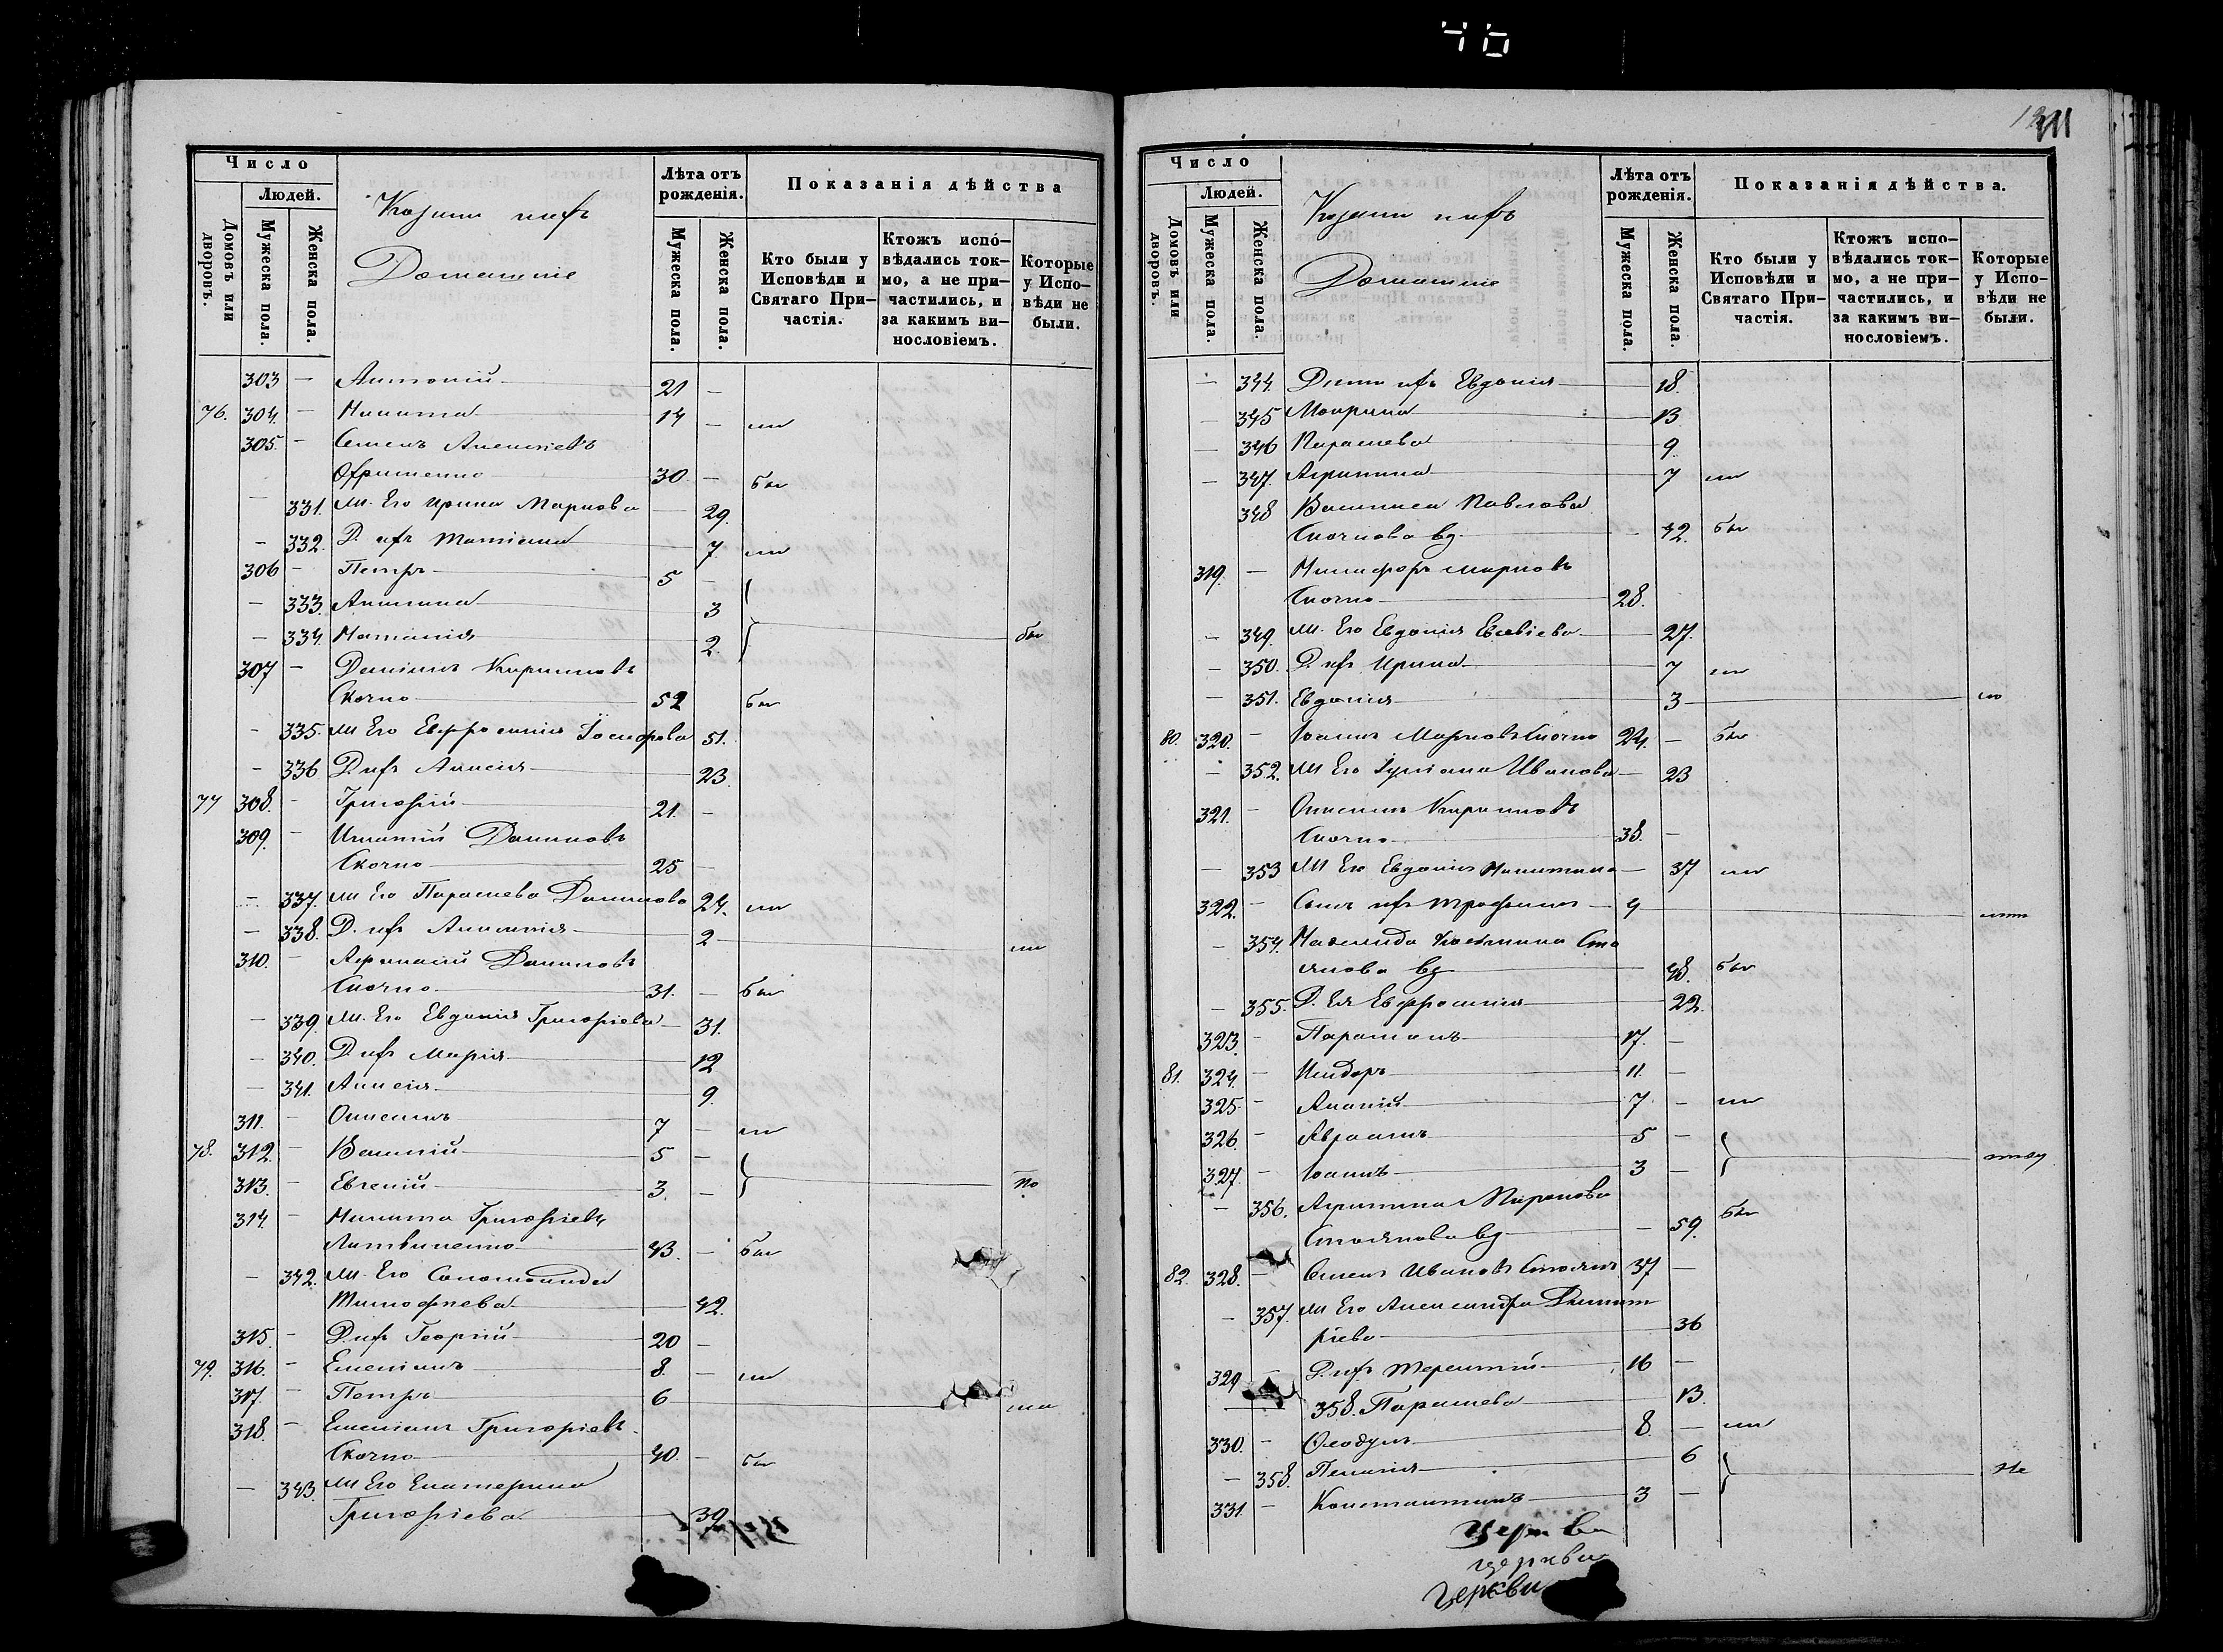 46
Число
Людей.
Домовъ или дворовъ.
Мужеска пола.
Женска пола.
Козаки ихъ
Домашніе
Лѣта отъ рожденія.
Мужеска пола.
Женска пола.
Показанія дѣйства
Кто были у Исповѣди и Святаго Причастія.
Ктожъ исповѣдались токмо, а не причастились, и за какимъ винословіемъ.
Которые у Исповѣди не были.
303 — Антоній 21 —
76. 304. — Никита 14 —
305. — Семенъ Алексѣевъ
30. — бы
— 331. Ж. Его Ирина Маркова 29.
— 332. Д. ихъ Татіана 7
306 — Петръ 5 —
— 333. Акилина 3
— 334. Наталія 2.
307 — Даміанъ Кирилловъ
Скочко 52 бы
— 335. Ж Его Евфросинія Іосифова 51.
— 336 Д. ихъ Анисія 23.
77 308. — Григорій 21. —
309. — Игнатій Даміановъ
Скочко 25 —
— 337. Ж Его Параскева Даміанова 24.
— 338. Д. ихъ 2
310. — Афанасій Даміановъ
Скочко 31. — бы
— 339. Ж. Его Евдокія Григоріева 31.
— 340. Д. ихъ Марія 12
— 341. Анисія 9.
311. — Онисимъ 7 —
78. 312. — Василій 5 —
313. — Евгеній 3. —
314. — Никита Григоріевъ
Литвиненко 43. — бы
— 342. Ж. Его Соломонида
Тимофеева 42.
315. — Д. ихъ Георгій 20 —
79. 316. — Емеліанъ 8. —
317. — Петръ 6
318. — Емеліанъ Григоріевъ
Скочко 40. — бы
— 343. Ж Его Екатерина
Григоріева 39.
Число
Людей.
Домовъ или дворовъ.
Мужеска пола.
Женска пола.
Козаки ихъ
Домашніе
Лѣта отъ рожденія.
Мужеска пола.
Женска пола.
Показанія дѣйства.
Кто были у Исповѣди и Святаго Причастія.
Ктожъ исповѣдались токмо, а не причастились, и за какимъ винословіемъ.
Которые у Исповѣди не были.
— 344. Дети ихъ Евдокія 18.
— 345 Маврина 13
— 346 Параскева 9.
— 347. Агрипина 7
348 Василиса Павлова
Скочкова вд. — 42. бы
319. — Никифоръ Марковъ
Скочко 28.
— 349. Ж. Его Евдокія Евсевіева 27.
— 350. Д. ихъ Ирина 7
— 351. Евдокія 3
80. 320. — Іоаннъ Марковъ Скочко 24. — бы
— 352. Ж Его Іуліана Иванова — 23
321. — Онисимъ Кирилловъ
Скочко 38. —
— 353 Ж Его Евдокія Никитина — 37
322. — Сынъ ихъ Трофимъ 4
— 354. Сто
янова вд 48. бы
— 355. Д. Ея Евфросинія 22.
323. — 17. —
81. 324. — Исидоръ 11 —
325. — Ананій 7. —
326 — Авраамъ 5 —
327. — Іоаннъ 3 —
— 356. Агрипина Миронова
Стоянова вд. — 59. бы
82. 328. — Семенъ Ивановъ Стоянъ 37 —
— 357. Ж Его Александра Димит
ріева 36
329 — Д. ихъ Терентій 16 —
358. Параскева 13.
330. — 8. —
— 358. Пелагія 6 Не
331 — Константинъ 3 —
Церкви
церкви
Церкви